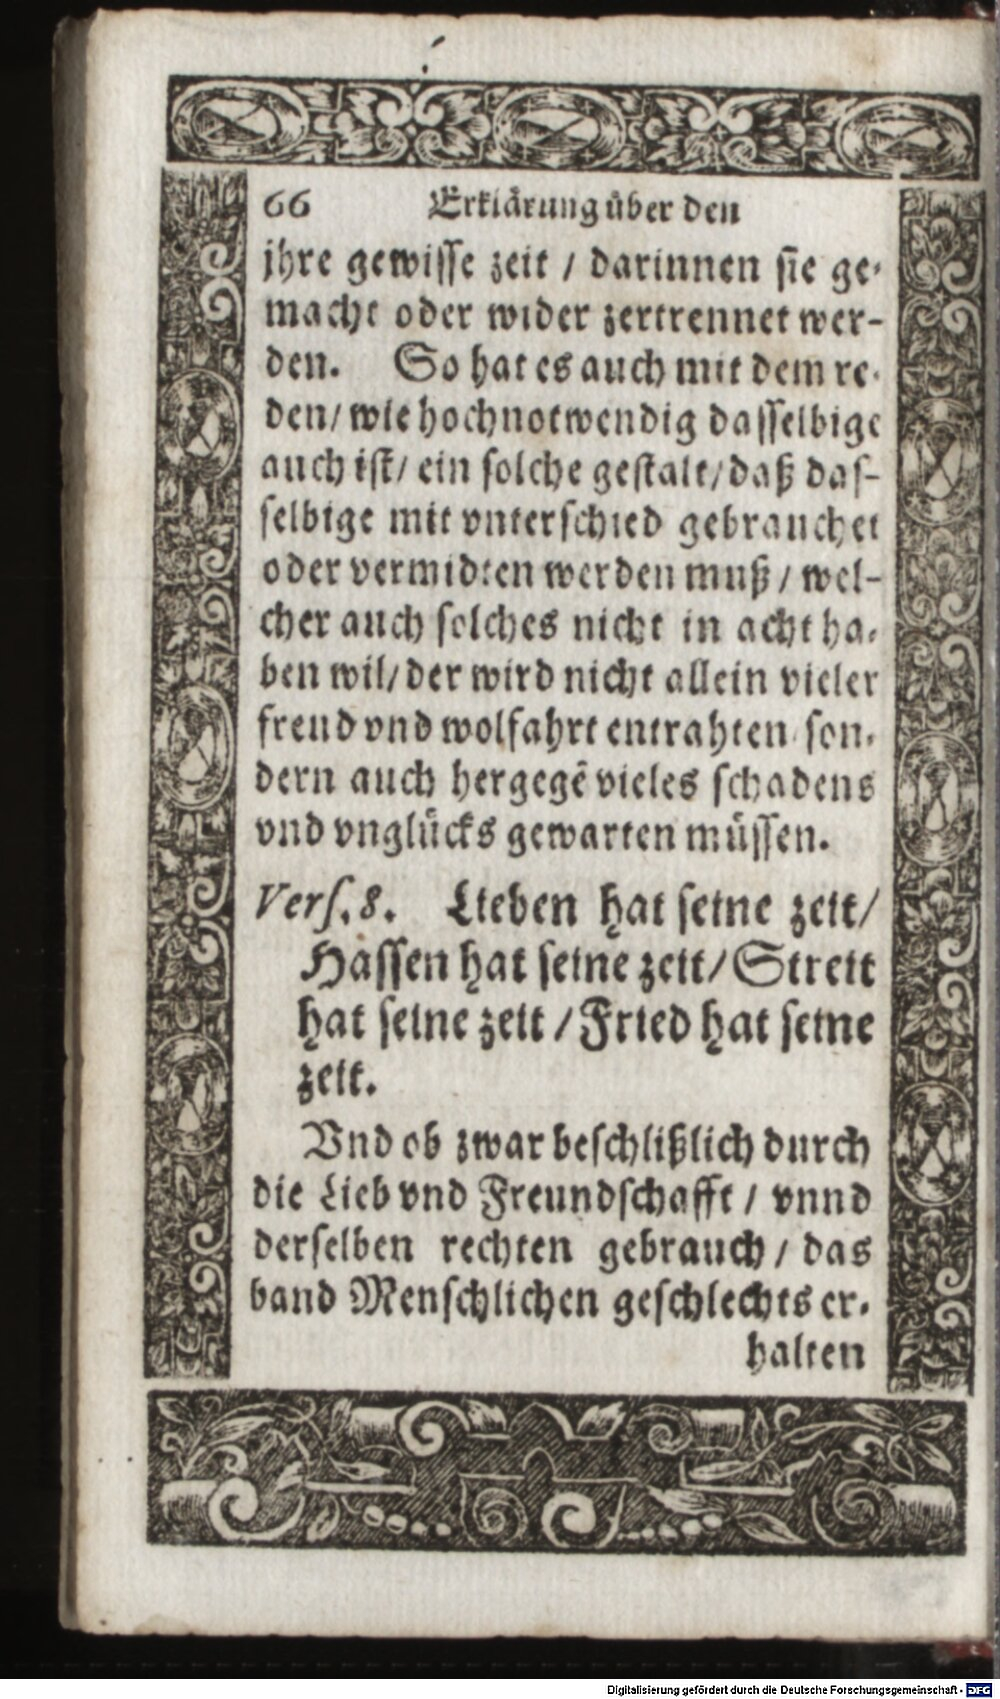 66 Erklärung über den
jhre gewisse zeit / darinnen sie ge-
macht oder wider zertrennet wer-
den. So hat es auch mit dem re-
den / wie hochnotwendig dasselbige
auch ist / ein solche gestalt / daß das-
selbige mit vnterschied gebrauchet
oder vermidten werden muß / wel-
cher auch solches nicht in acht ha-
ben wil / der wird nicht allein vieler
freud vnd wolfahrt entrahten / son-
dern auch hergegē vieles schadens
vnd vnglücks gewarten müssen.
Vers. 8. Lieben hat seine zeit /
Hassen hat seine zeit / Streit
hat seine zeit / Fried hat seine
zeit.
Vnd ob zwar beschlißlich durch
die Lieb vnd Freundschafft / vnnd
derselben rechten gebrauch / das
band Menschlichen geschlechts er-
halten
Digitalisierung gefördert durch die Deutsche Forschungsgemeinschaft - DFG